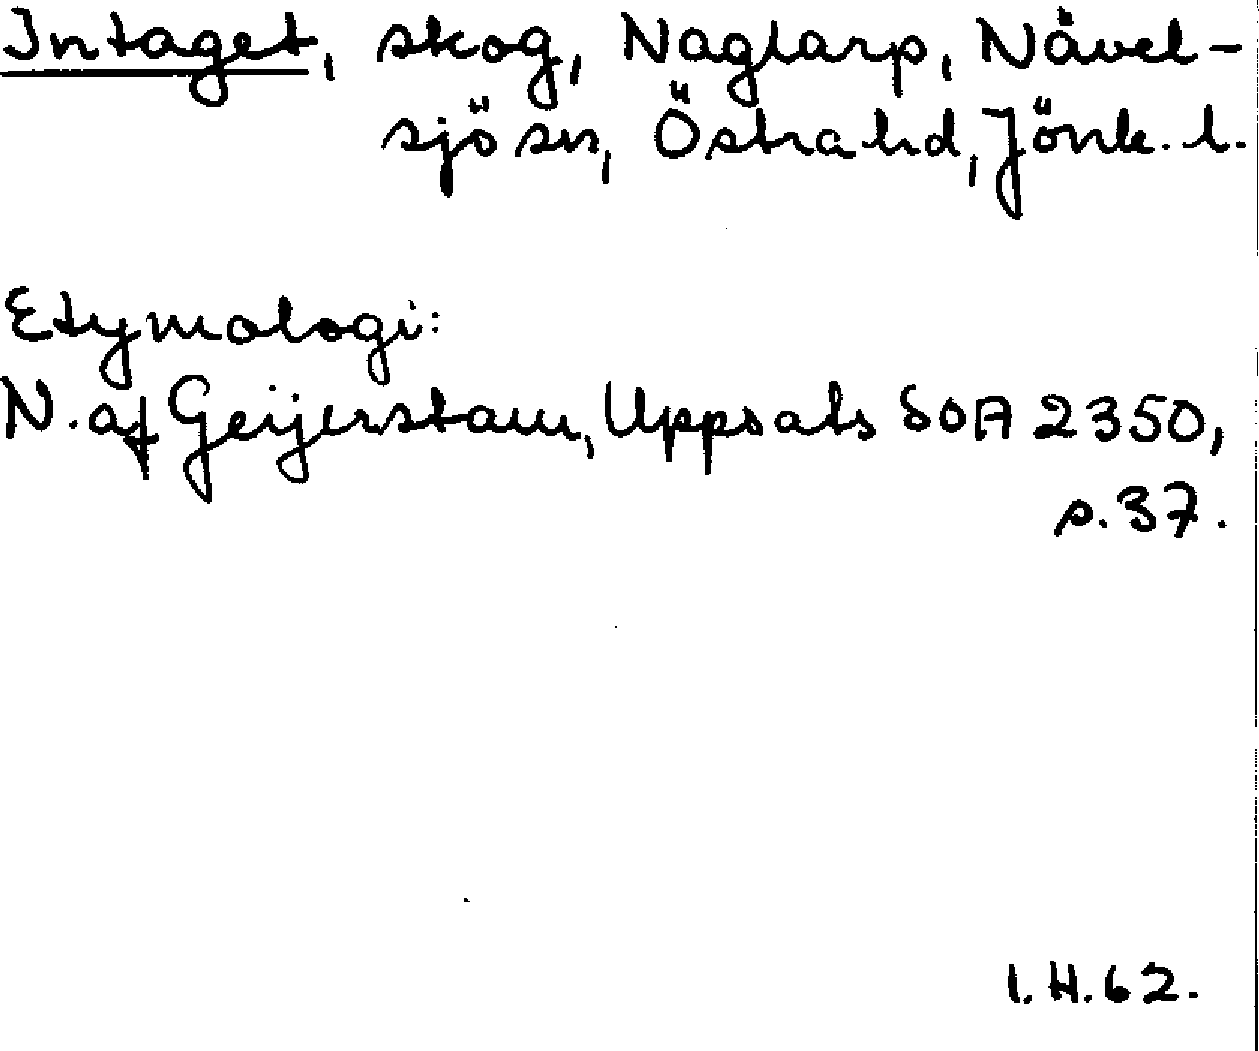 Intaget, skog, Naglarp, Nävel-
sjö sn, Östra hd, Jönk. l.
Etymologi:
N. af Geijerstam, Uppsats SOA 2350,
s. 37.
I. H. 62.